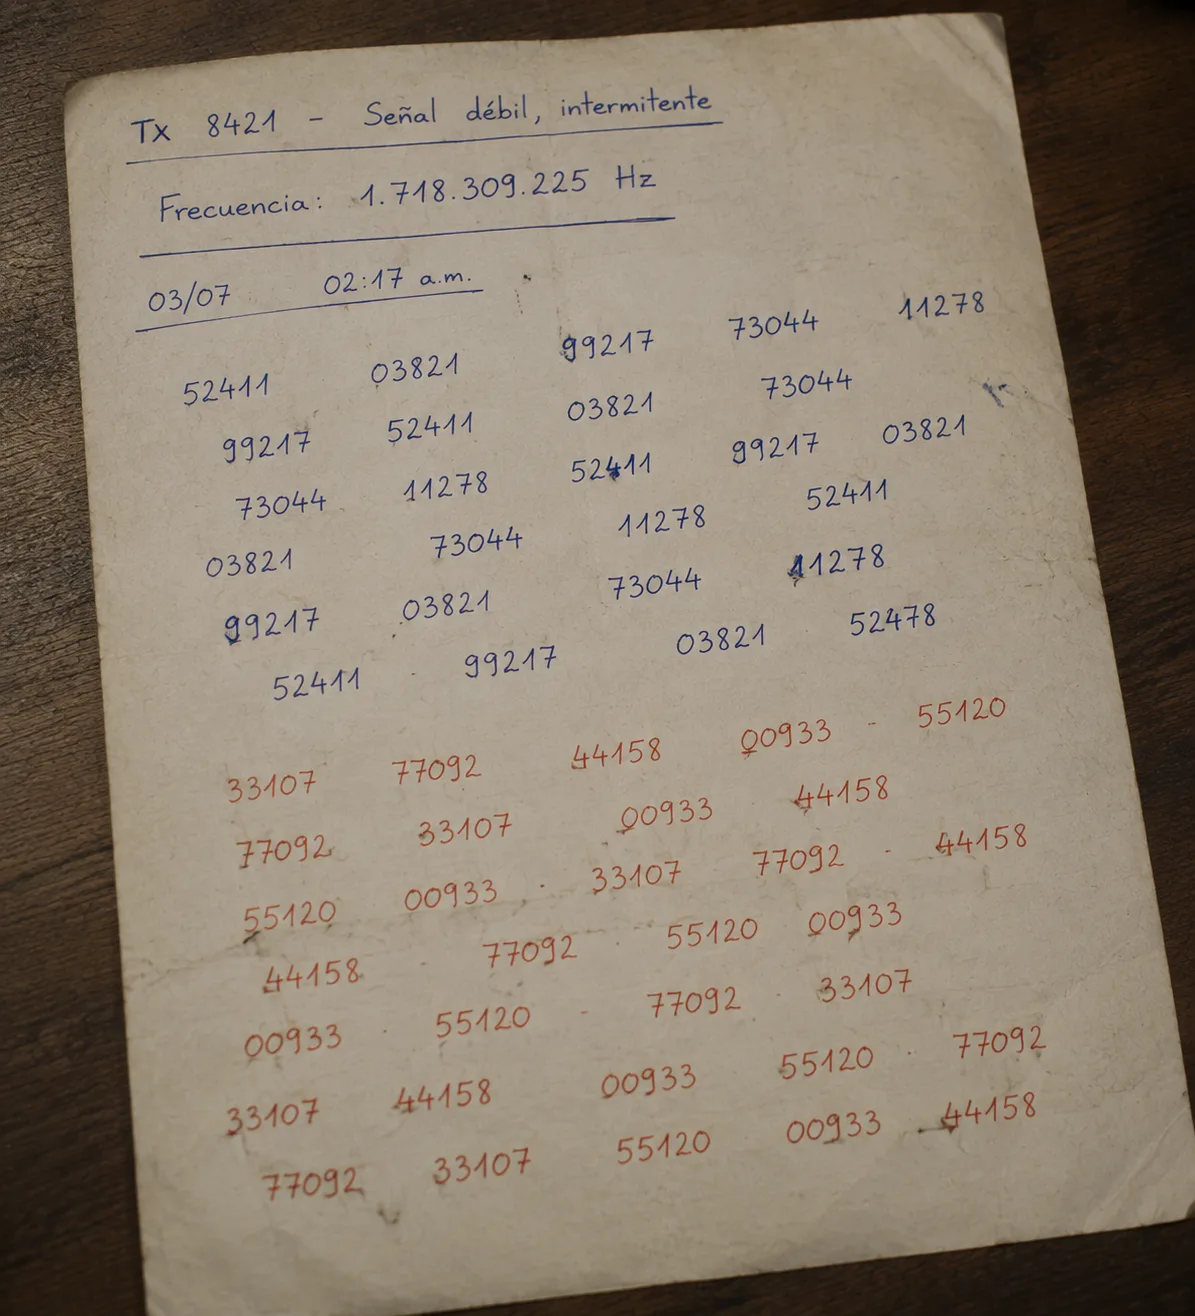 Tx 8421 - Señal débil, intermitente
Frecuencia: 1.718.309.225 Hz
03/07 02:17 a.m.
52411 03821 99217 73044 11278
99217 52411 03821 73044
73044 11278 52411 99217 03821
03821 73044 11278 52411
99217 03821 73044 11278
52411 99217 03821 52478
33107 77092 44158 00933 - 55120
77092 33107 00933 44158
55120 00933 · 33107 77092 - 44158
44158 · 77092 · 55120 00933
00933 · 55120 - 77092 · 33107
33107 44158 00933 55120 · 77092
77092 33107 55120 00933 44158